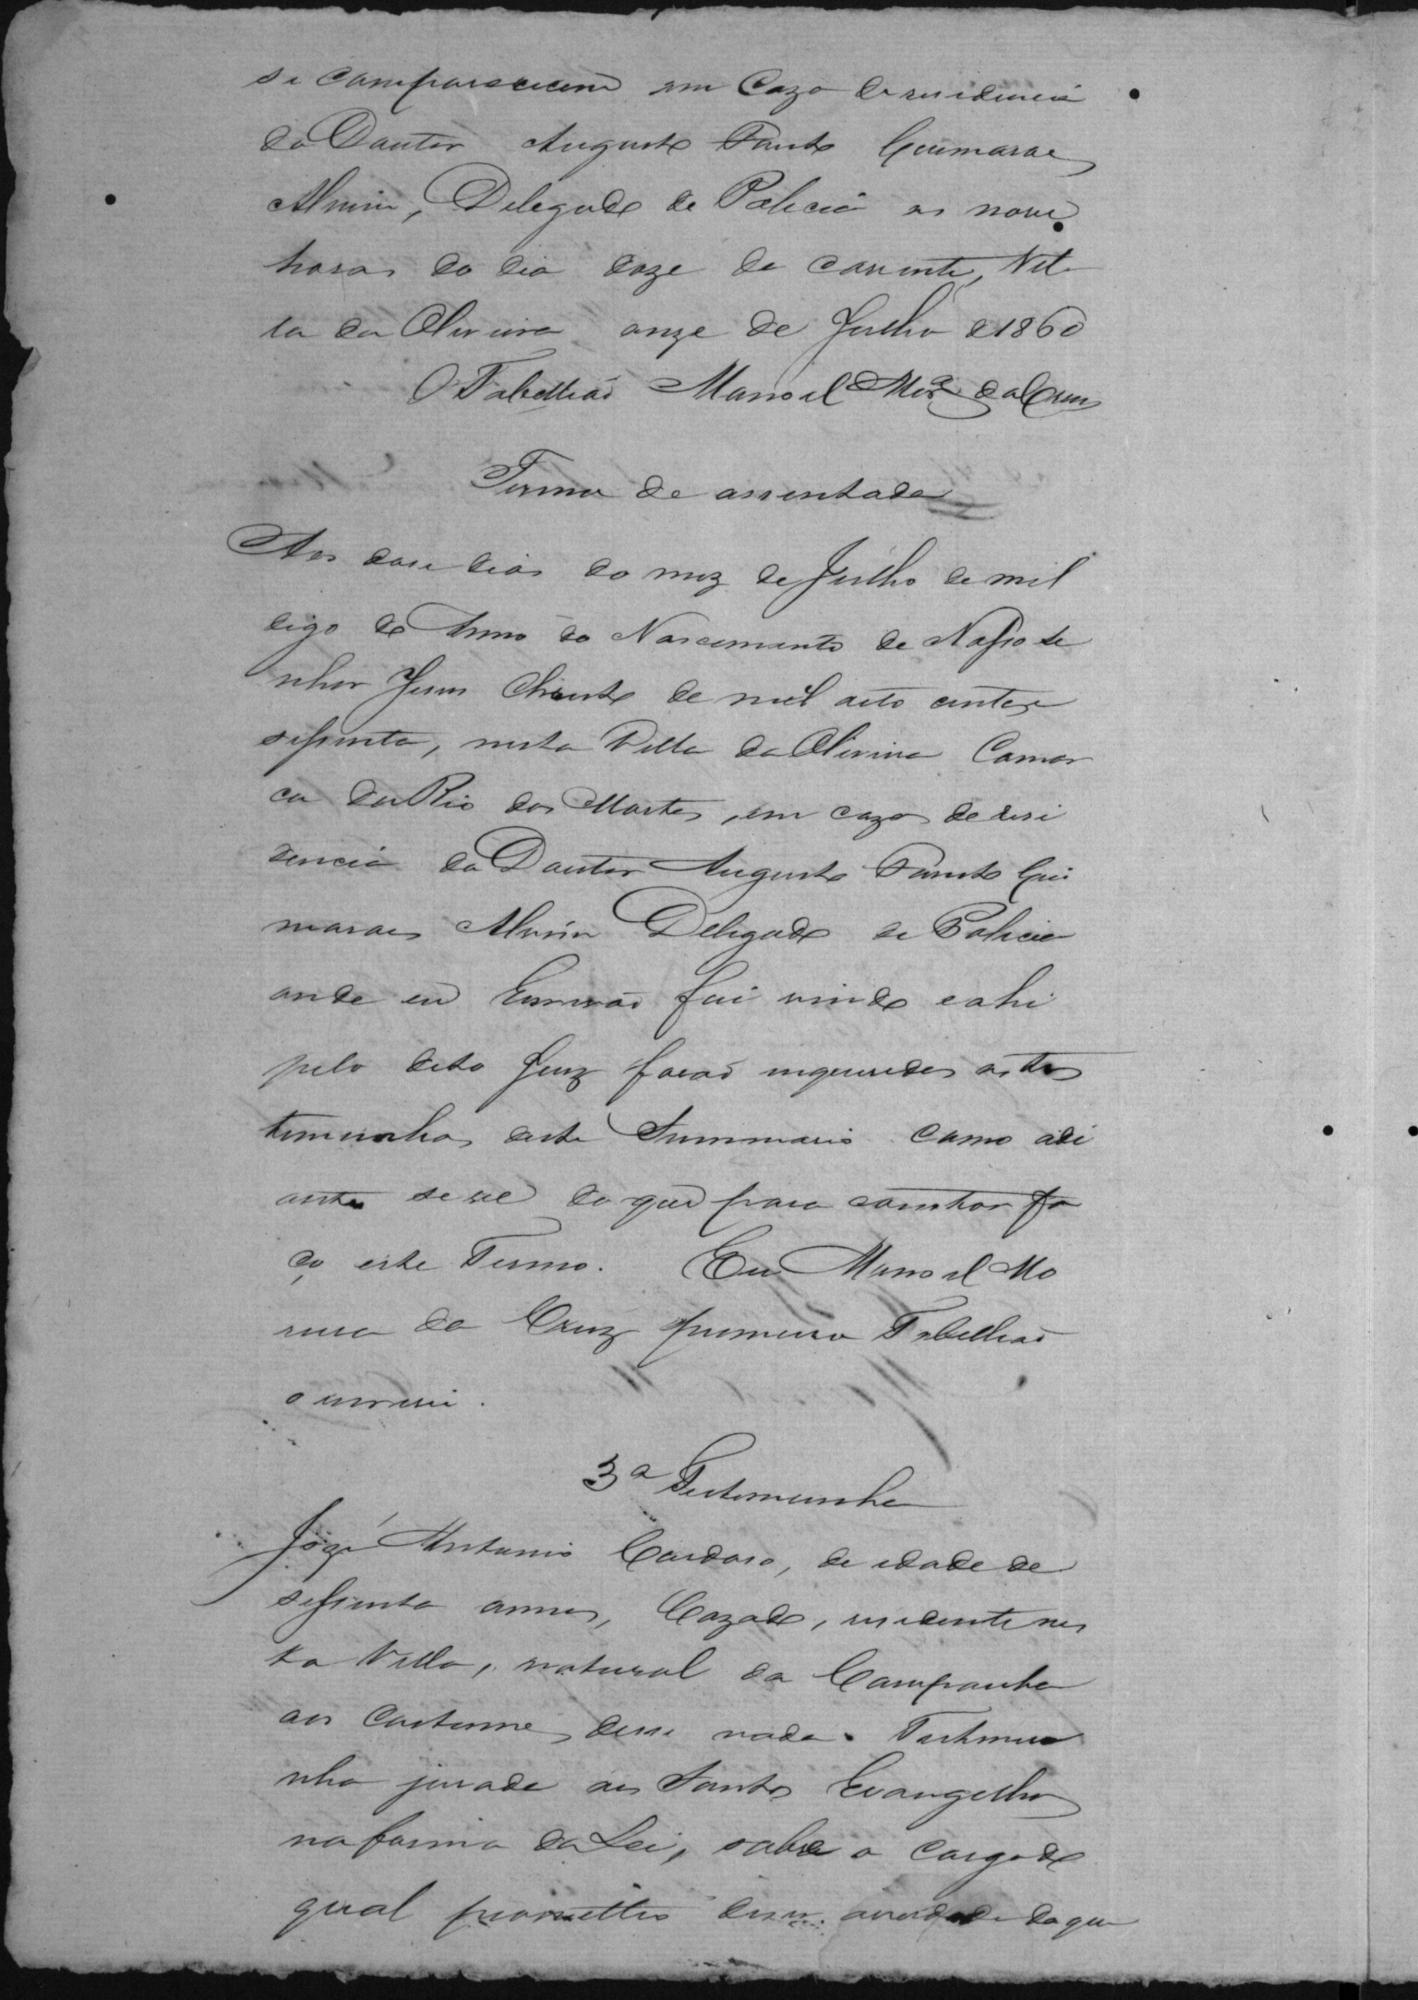 se comparecerem em Caza de residencia
do Doutor Augusto Fausto Guimaraes
Alvim, Delegado de Policia as nove
horas do dia doze do corrente, Vil
la da Oliveira onze de Julho de 1860
O Tabelliaõ Manoel Mor.ª da Cruz
Termo de assentada
Aos doze dias do mez de Julho de mil
digo do Anno do Nascimento de Nosso Se
nhor Jesus Christo de mil oito centos e
sessenta, nesta Villa da Oliveira Comar
ca do Rio das Mortes, em caza de resi
dencia do Doutor Augusto Fausto Gui
maraes Alvim Delegado de Policia
onde eu Escrivaõ fui vindo e ahi
pelo dito Juiz foraõ inqueridas as tes
temunhas deste Summario como adi
ante se ve do que para constar fa
ço este Termo. Eu Manoel Mo
reira da Cruz primeiro Tabelliaõ
o escrevi.
3ª Testemunha
Jozé Antonio Cardoso, de idade de
sessenta annos, Cazado, residente nes
ta Villa, natural da Campanha
aos costumes disse nada. Testemu
nha jurada aos Santos Evangelhos
na forma da Lei, sob o cargo do
qual prometteo dizer a verdade do que